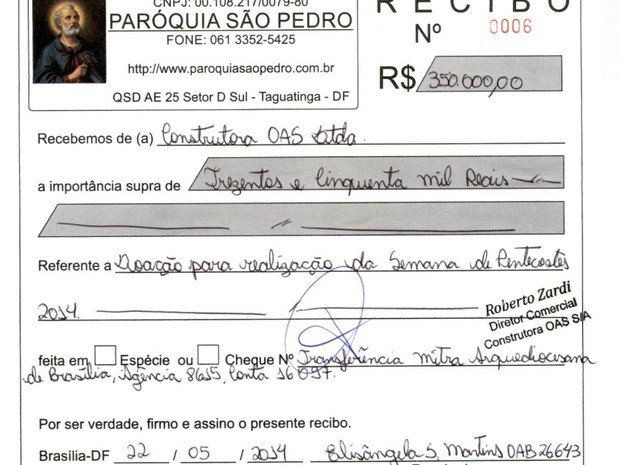 CNPJ: 00.108.217/0079-80
PARÓQUIA SÃO PEDRO
FONE: 061 3352-5425
http://www.paroquiasaopedro.com.br
QSD AE 25 Setor D Sul - Taguatinga - DF
RECIBO
Nº 0006
R$ 350.000,00
Recebemos de (a) Construtora OAS Ltda.
a importância supra de Trezentos e Cinquenta mil Reais
Referente a Doação para realização da Semana de Pentecostes
2014.
Roberto Zardi
Diretor Comercial
Construtora OAS S/A
feita em Espécie ou Cheque Nº Transferência Mitra Arquediocesana
de Brasília, Agência 8615, Conta 16097.
Por ser verdade, firmo e assino o presente recibo.
Brasília-DF 22 / 05 / 2014 Elisângela S. Martins OAB 26643